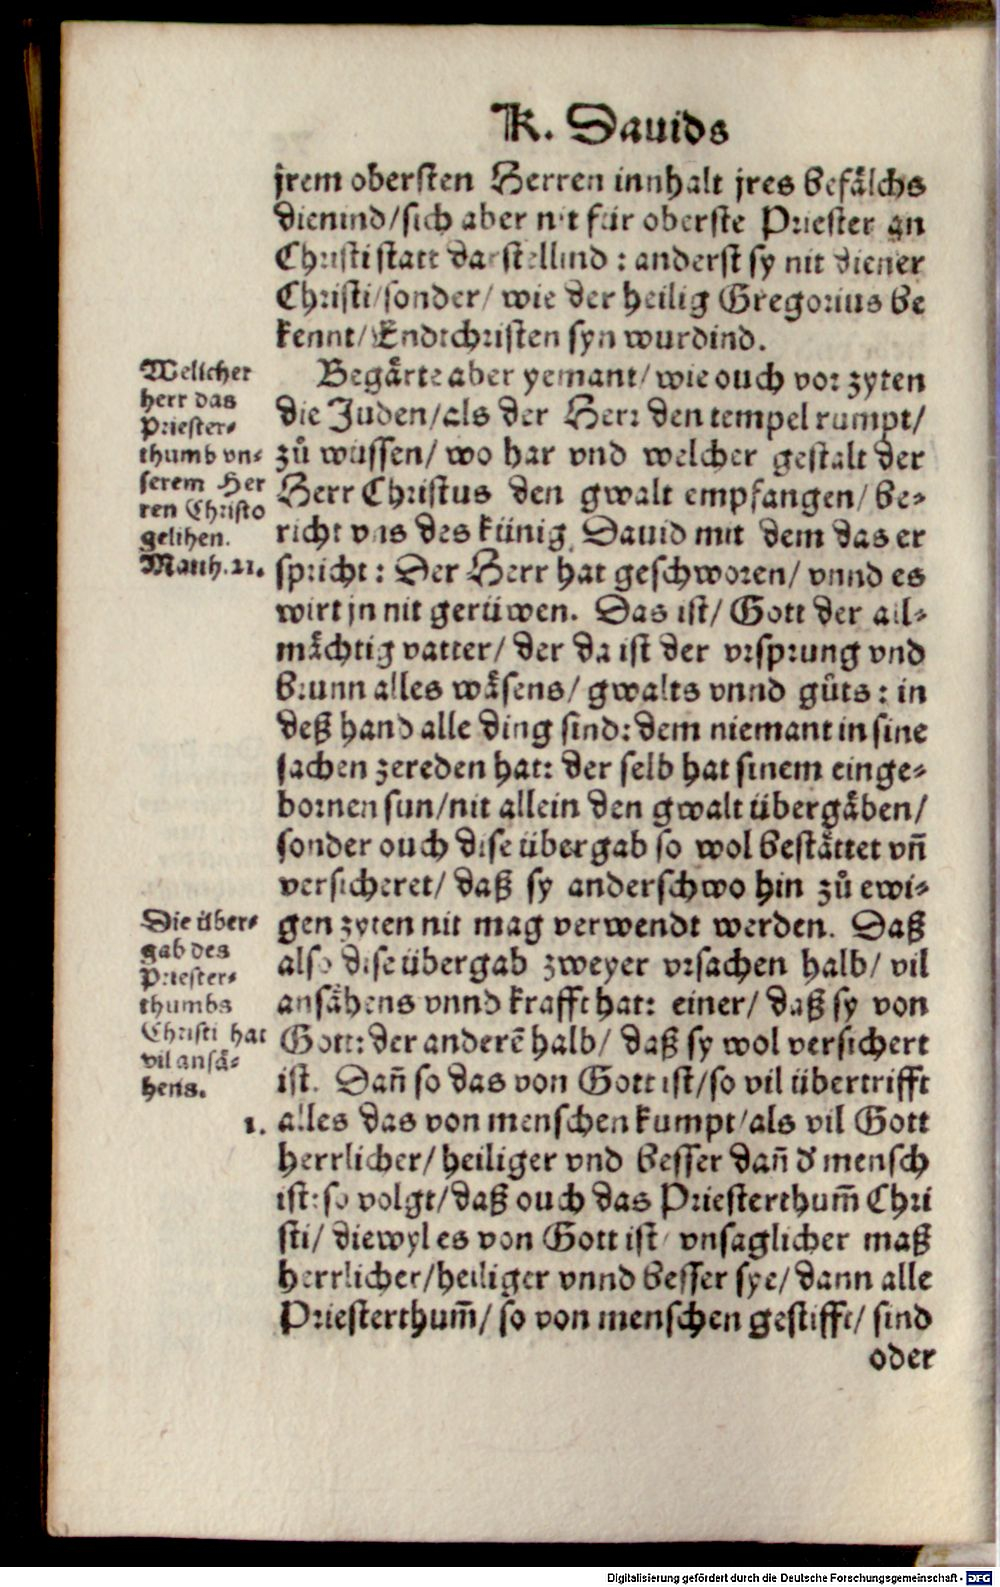 K. Dauids
jrem obersten Herren innhalt jres befälchs
dienind/sich aber nit für oberste Priester an
Christi statt darstellind : anderst sy nit diener
Christi/sonder/ wie der heilig Gregorius be
kennt/ Endtchristen syn wurdind.
Welicher
herr das
Priester⸗
thumb vn⸗
serem Her
ren Christo
gelihen.
Matth. 21.
Begärte aber yemant/ wie ouch vor zyten
die Juden/als der Herr den tempel rumpt/
zů wüssen/ wo har vnd welcher gestalt der
Herr Christus den gwalt empfangen/ be⸗
richt vns des künig Dauid mit dem das er
spricht : Der Herr hat geschworen/ vnnd es
wirt jn nit gerüwen. Das ist/ Gott der all⸗
mächtig vatter/ der da ist der vrsprung vnd
brunn alles wäsens/ gwalts vnnd gůts : in
deß hand alle ding sind: dem niemant in sine
sachen zereden hat: der selb hat sinem einge⸗
bornen sun/nit allein den gwalt übergäben/
sonder ouch dise übergab so wol bestättet vñ
versicheret/ daß sy anderschwo hin zů ewi⸗
gen zyten nit mag verwendt werden. Daß
also dise übergab zweyer vrsachen halb/ vil
ansähens vnnd krafft hat: einer/ daß sy von
Gott: der anderẽ halb/ daß sy wol versichert
ist. Dañ so das von Gott ist/so vil übertrifft
Die über⸗
gab des
Priester⸗
thumbs
Christi hat
vil ansä⸗
hens.
1.
alles das von menschen kumpt/als vil Gott
herrlicher/ heiliger vnd besser dañ d' mensch
ist: so volgt/daß ouch das Priesterthum̃ Chri
sti/ diewyl es von Gott ist/ vnsaglicher maß
herrlicher/heiliger vnnd besser sye/ dann alle
Priesterthum̃/ so von menschen gestifft/ sind
oder
Digitalisierung gefördert durch die Deutsche Forschungsgemeinschaft - DFG